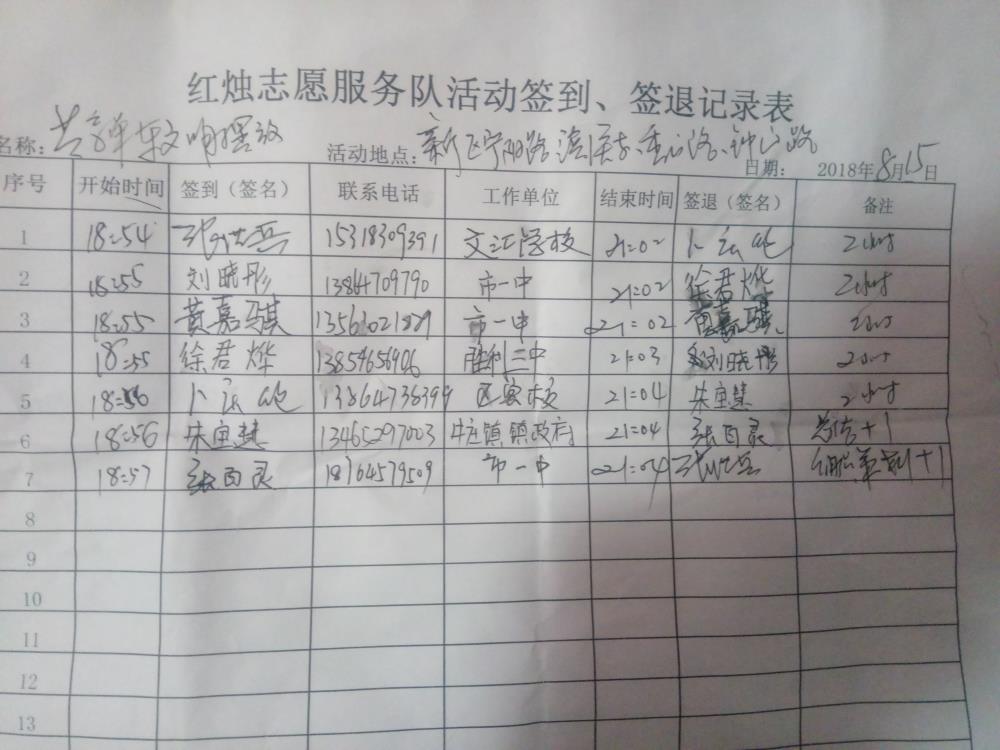 红烛志愿服务队活动签到、签退记录表
名称: 共享单车文明摆放 活动地点: 新区宁阳路 路、钟山路
日期: 2018年8月15日
序号 开始时间 签到（签名） 联系电话 工作单位 结束时间 签退（签名） 备注
1 18:54 15318309391 文汇学校 21:02 2小时
2 18:55 刘晓彤 13864709790 市一中 21:02 徐君烨 2小时
3 18:55 黄嘉骐 市一中 21:02 黄嘉骐 2小时
4 18:55 徐君烨 13854656906 胜利二中 21:03 刘晓彤 2小时
5 18:56 13864738399 21:04 朱宝慧 2小时
6 18:56 朱宝慧 13465297003 庄镇镇政府 21:04 张百录 总结+1
7 18:57 张百录 18764579509 市一中 21:04 +1
8
9
10
11
12
13